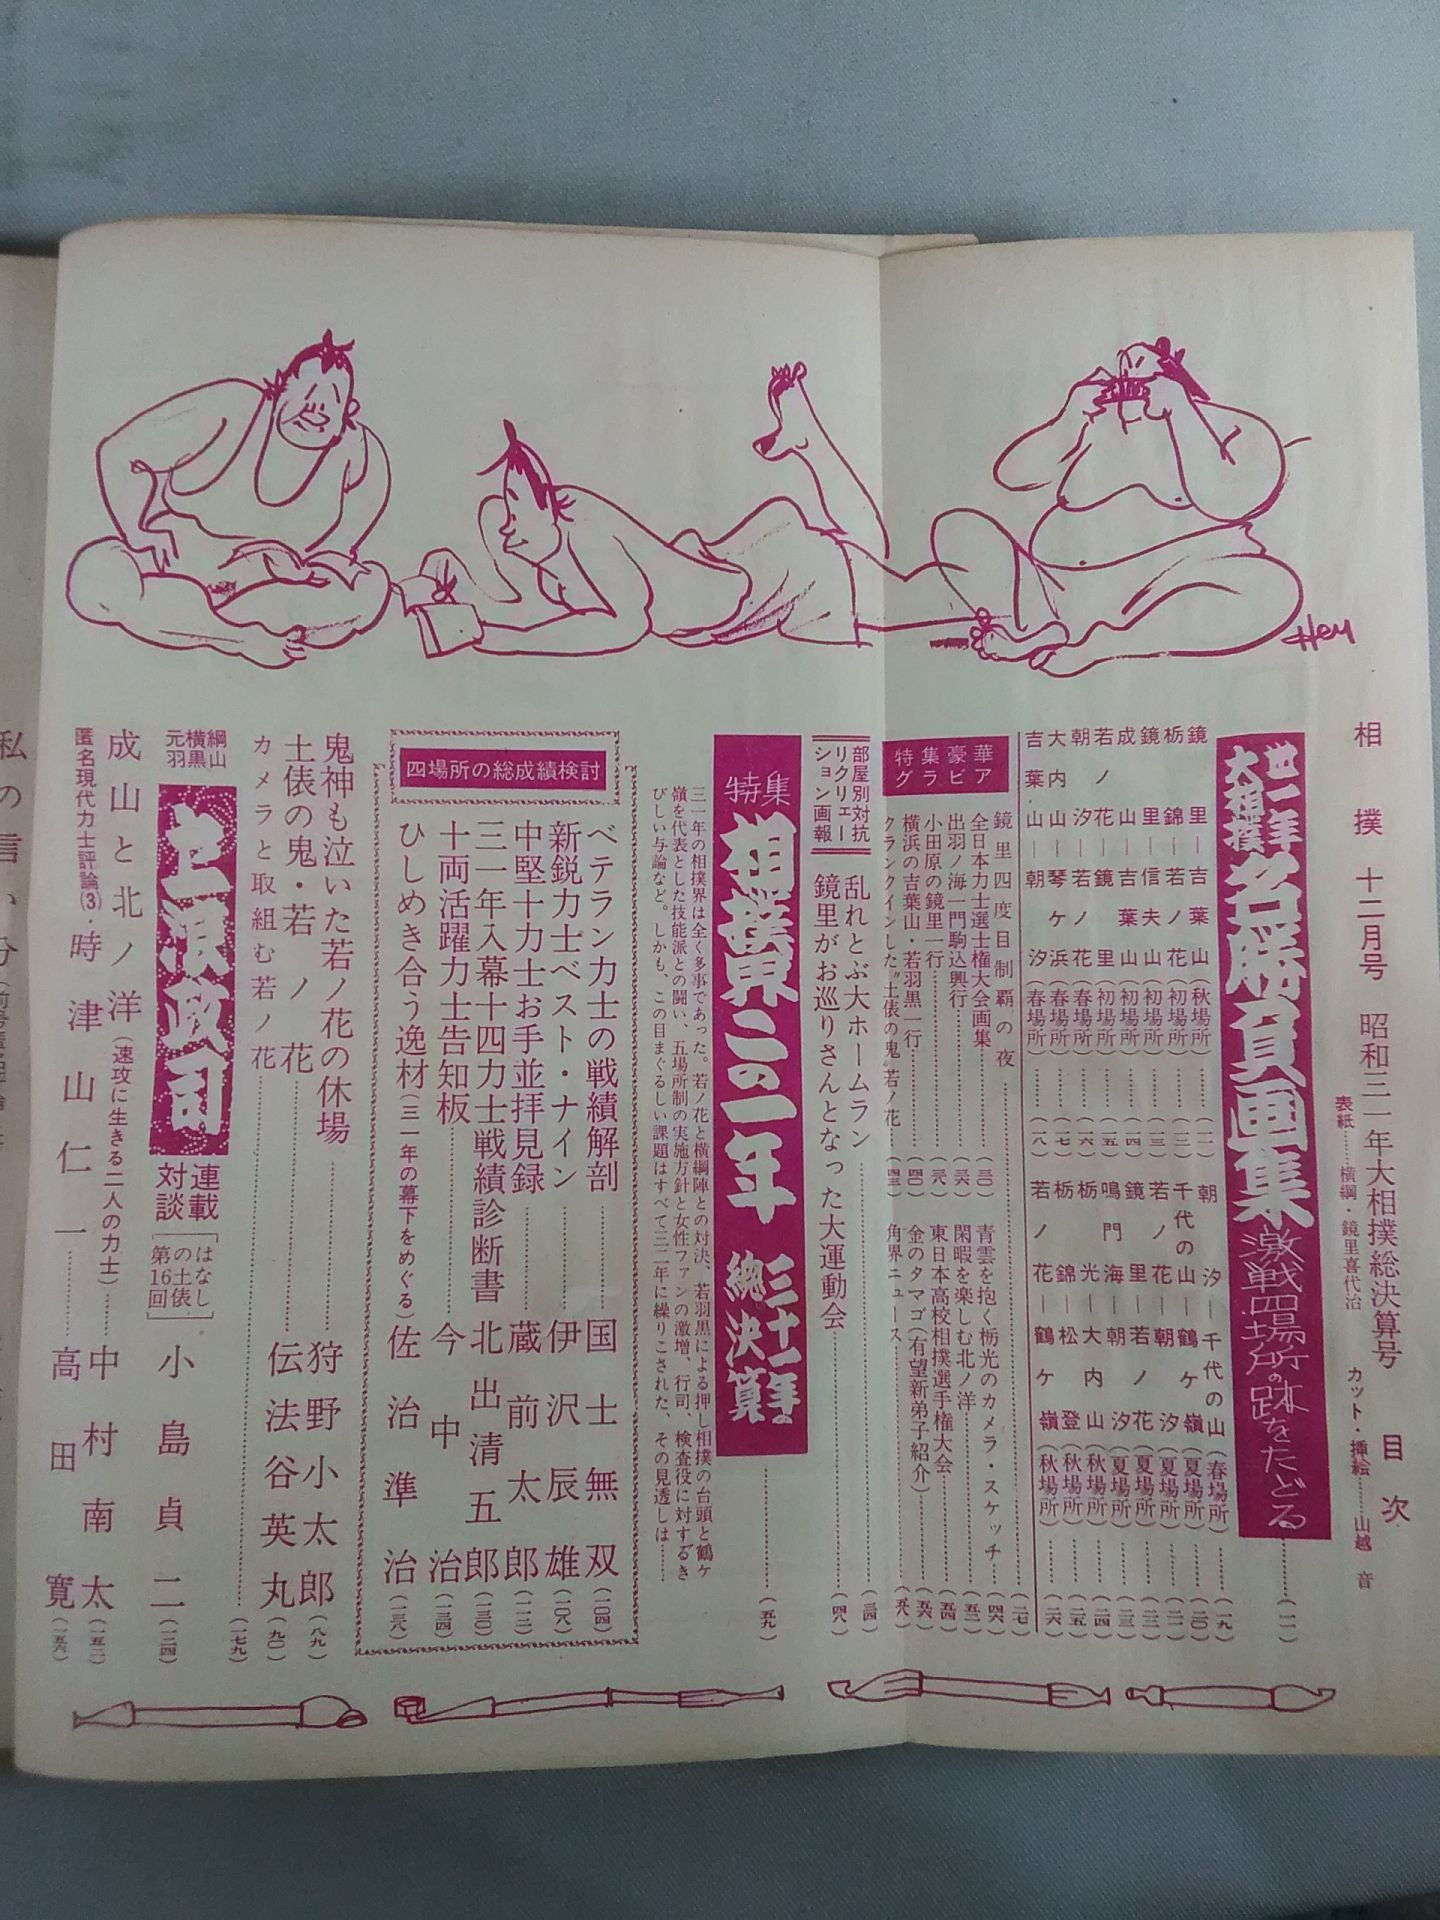 相撲 十二月号 昭和三一年大相撲総決算号 目次
表紙……横綱・鏡里喜代治
カット・挿絵……山越 音
大相撲
名勝負画集
激戦四場所の跡をたどる……(一一)
鏡里―吉葉山(秋場所)
栃錦―若ノ花(初場所)……(一二)
鏡里―信夫山(初場所)……(一三)
成山―吉葉山(初場所)……(一四)
若ノ花―鏡里(初場所)……(一五)
朝汐―若ノ花(春場所)……(一六)
大内山―琴ケ浜(春場所)……(一七)
吉葉山―朝汐(春場所)……(一八)
朝汐―千代の山(春場所)……(一九)
千代の山―鶴ケ嶺(夏場所)……(二〇)
若ノ花―朝汐(夏場所)……(二一)
鏡里―若ノ花(夏場所)……(二二)
鳴門海―朝汐(夏場所)……(二三)
栃光―大内山(秋場所)……(二四)
栃錦―松登(秋場所)……(二五)
若ノ花―鶴ケ嶺(秋場所)……(二六)
華豪集特
アビラグ
鏡里四度目制覇の夜……(二七)
全日本力士選士権大会画集……(三〇)
出羽ノ海一門駒込興行……(三六)
小田原の鏡里一行……(三八)
横浜の吉葉山・若羽黒一行……(四〇)
クランクインした〝土俵の鬼〟若ノ花……(四三)
青雲を抱く栃光のカメラ・スケッチ……(四六)
閑暇を楽しむ北ノ洋……(五二)
東日本高校相撲選手権大会……(五四)
金のタマゴ(有望新弟子紹介)……(五六)
角界ニュース……(五八)
部屋別対抗
リクリェー
ション画報
乱れとぶ大ホームラン……(三四)
鏡里がお巡りさんとなった大運動会……(四八)
特集
相撲界この一年
三十一年の
總決算
……(五九)
三一年の相撲界は全く多事であった。若ノ花と横綱陣との対決、若羽黒による押し相撲の台頭と鶴ケ
嶺を代表とした技能派との闘い、五場所制の実施方針と女性ファンの激増、行司、検査役に対するき
びしい与論など。しかも、この目まぐるしい課題はすべて三二年に繰りこされた、その見透しは……
四場所の総成績検討
ベテラン力士の戦績解剖……国士無双(一〇四)
新鋭力士ベスト・ナイン……伊沢辰雄(一〇八)
中堅十力士お手並拝見録……蔵前太郎
三一年入幕十四力士戦績診断書……北出清五郎(一三〇)
十両活躍力士告知板……今中治(一三四)
ひしめき合う逸材(三一年の幕下をめぐる)佐治準治(一三八)
鬼神も泣いた若ノ花の休場……狩野小太郎(八九)
土俵の鬼・若ノ花……伝法谷英丸(九〇)
カメラと取組む若ノ花……(一七九)
綱山
横黒
元羽
政司
連載
対談
はなし
の土俵
第16回
小島貞二(一二四)
成山と北ノ洋(速攻に生きる二人の力士)……中村南太(一五二)
匿名現代力士評論(3)・時津山仁一……高田寛(一五六)
私の言い分
Hey